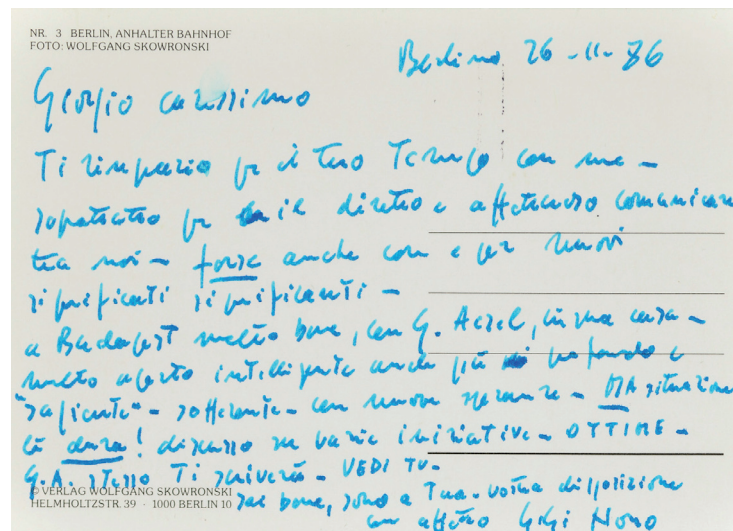 NR. 3 BERLIN, ANHALTER BAHNHOF
FOTO: WOLFGANG SKOWRONSKI
Berlino 26-11-86
Giorgio carissimo
Ti ringrazio per il tuo Tempo con me –
sopratutto per il diretto e affettuoso comunicare
tra noi – forse anche con e per nuovi
significanti significanti –
a Budapest molto bene, con G. Aczel, in sua casa –
molto aperto intelligente anche più profondo e
"sapiente" – sofferente – con nuove speranze – MA situazione
là dura! discusso su varie iniziative – OTTIME –
G.A. stesso Ti scriverà – VEDI TU –
stai bene, sono a Tua-vostra disposizione
con affetto Gigi Nono
© VERLAG WOLFGANG SKOWRONSKI
HELMHOLTZSTR. 39 · 1000 BERLIN 10